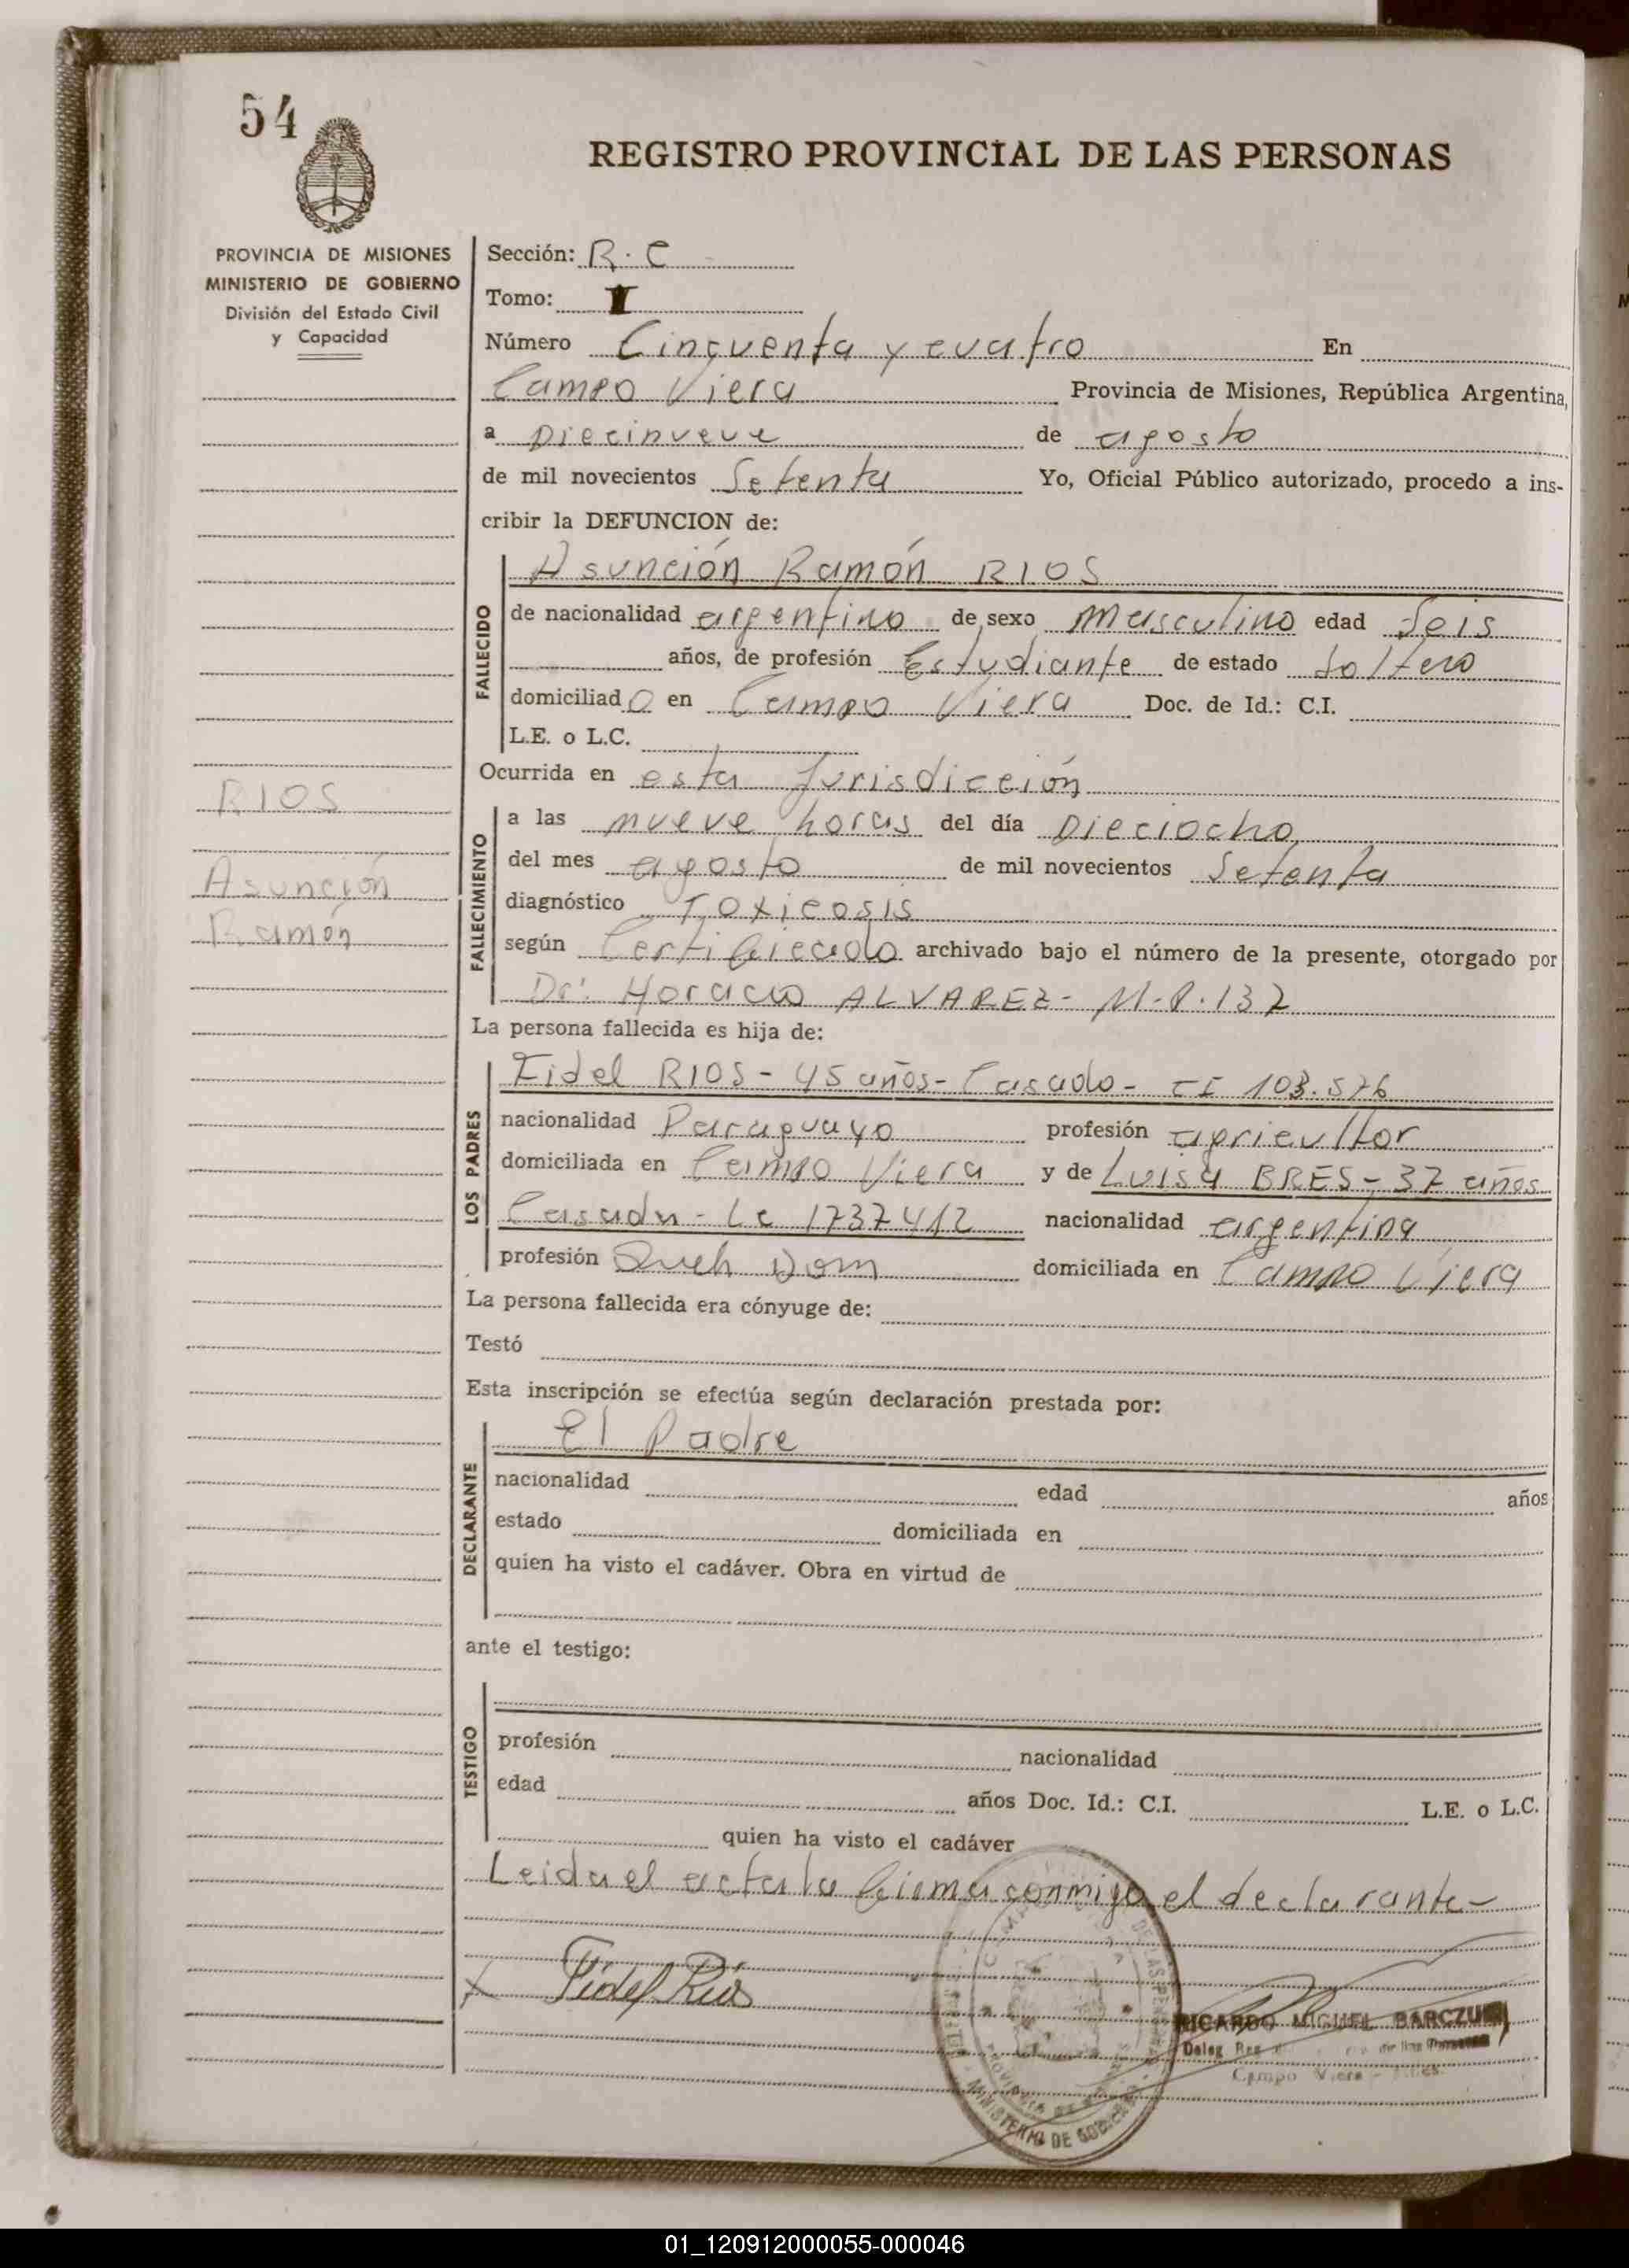 54
REGISTRO PROVINCIAL DE LAS PERSONAS
PROVINCIA DE MISIONES
MINISTERIO DE GOBIERNO
División del Estado Civil
y Capacidad
Sección: R.C
Tomo: I
Número Cincuenta y cuatro En
Campo Viera Provincia de Misiones, República Argentina,
a Diecinueve de agosto
de mil novecientos Setenta Yo, Oficial Público autorizado, procedo a ins-
cribir la DEFUNCION de:
FALLECIDO
Asunción Ramón RIOS
de nacionalidad argentino de sexo masculino edad Seis
años, de profesión Estudiante de estado Soltero
domiciliado en Campo Viera Doc. de Id.: C.I.
L.E. o L.C.
Ocurrida en esta Jurisdicción
RIOS
Asunción
Ramón
FALLECIMIENTO
a las nueve horas del día Dieciocho
del mes agosto de mil novecientos Setenta
diagnóstico Toxicosis
según Certificado archivado bajo el número de la presente, otorgado por
Dr: Horacio ALVAREZ - M.P. 137
La persona fallecida es hija de:
LOS PADRES
Fidel RIOS - 45 años - Casado - CI 103.576
nacionalidad Paraguayo profesión agricultor
domiciliada en Campo Viera y de Luisa BRES - 37 años
Casada - Lc 1737412 nacionalidad argentina
profesión Queh Dom domiciliada en Campo Viera
La persona fallecida era cónyuge de:
Testó
Esta inscripción se efectúa según declaración prestada por:
DECLARANTE
El Padre
nacionalidad edad años
estado domiciliada en
quien ha visto el cadáver. Obra en virtud de
ante el testigo:
TESTIGO
profesión nacionalidad
edad años Doc. Id.: C.I. L.E. o L.C.
quien ha visto el cadáver
Leida el acta la firma conmigo el declarante-
x Fidel Rios
MINISTERIO DE GOBIERNO
RICARDO MIGUEL BARCZUK
Deleg Reg de las Personas
Campo Viera - Mnes.
01_120912000055-000046